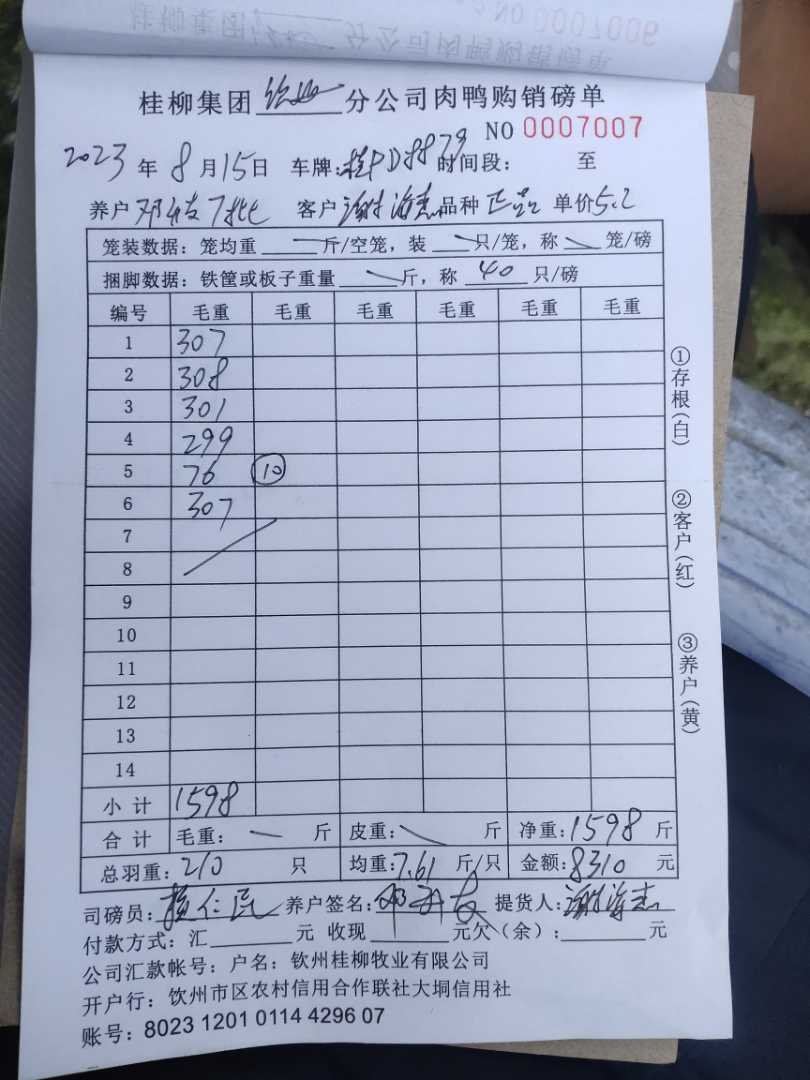 桂柳集团钦州分公司肉鸭购销磅单
NO 0007007
2023年8月15日 车牌:桂PD8879 时间段: 至
养户 邓 客户 谢海杰 品种 正品 单价5.2
笼装数据:笼均重 斤/空笼,装 只/笼,称 笼/磅
捆脚数据:铁筐或板子重量 斤,称 40 只/磅
编号 毛重 毛重 毛重 毛重 毛重 毛重
1 307
2 308
3 301
4 299
5 76 ⑩
6 307
7
8
9
10
11
12
13
14
小计 1598
合计 毛重: 斤 皮重: 斤 净重:1598 斤
总羽重:210 只 均重:7.61 斤/只 金额:8310 元
司磅员: 仁民 养户签名:邓 提货人:谢海杰
付款方式:汇 元 收现 元欠(余): 元
公司汇款帐号:户名:钦州桂柳牧业有限公司
开户行:钦州市区农村信用合作联社大垌信用社
账号:8023 1201 0114 4296 07
①存根(白)
②客户(红)
③养户(黄)